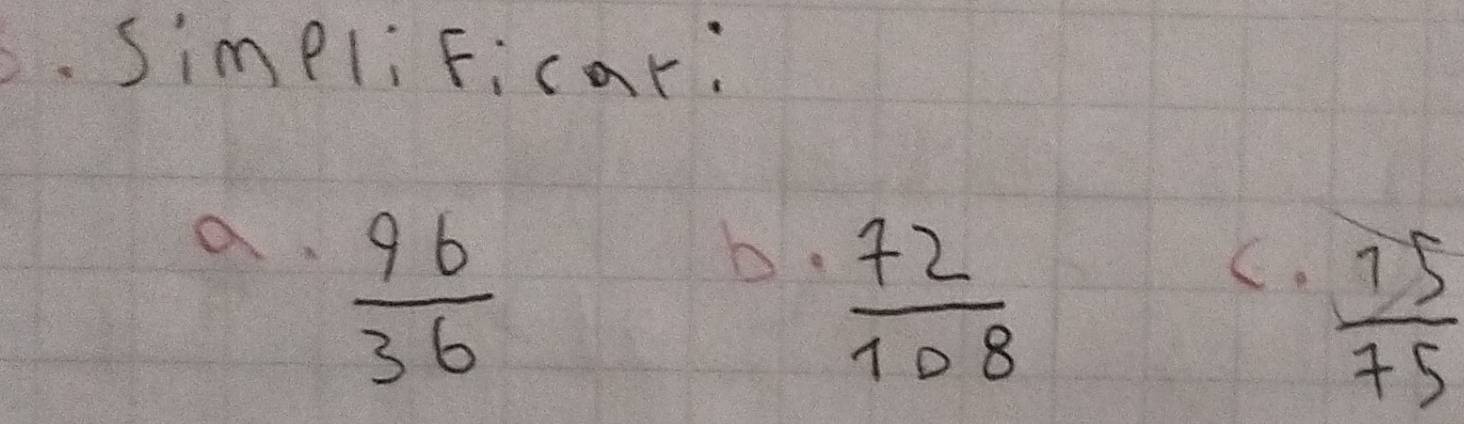 . Simplificar:
a. 96/36 b. 72/108 c. 15/75